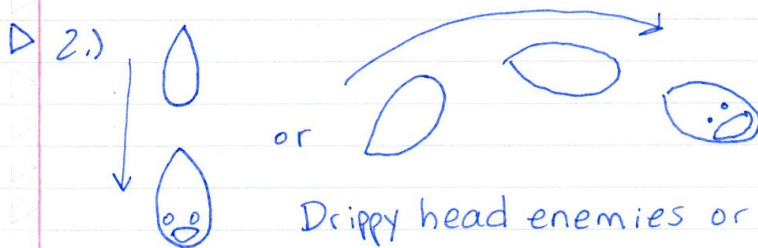 2.)
or
Drippy head enemies or